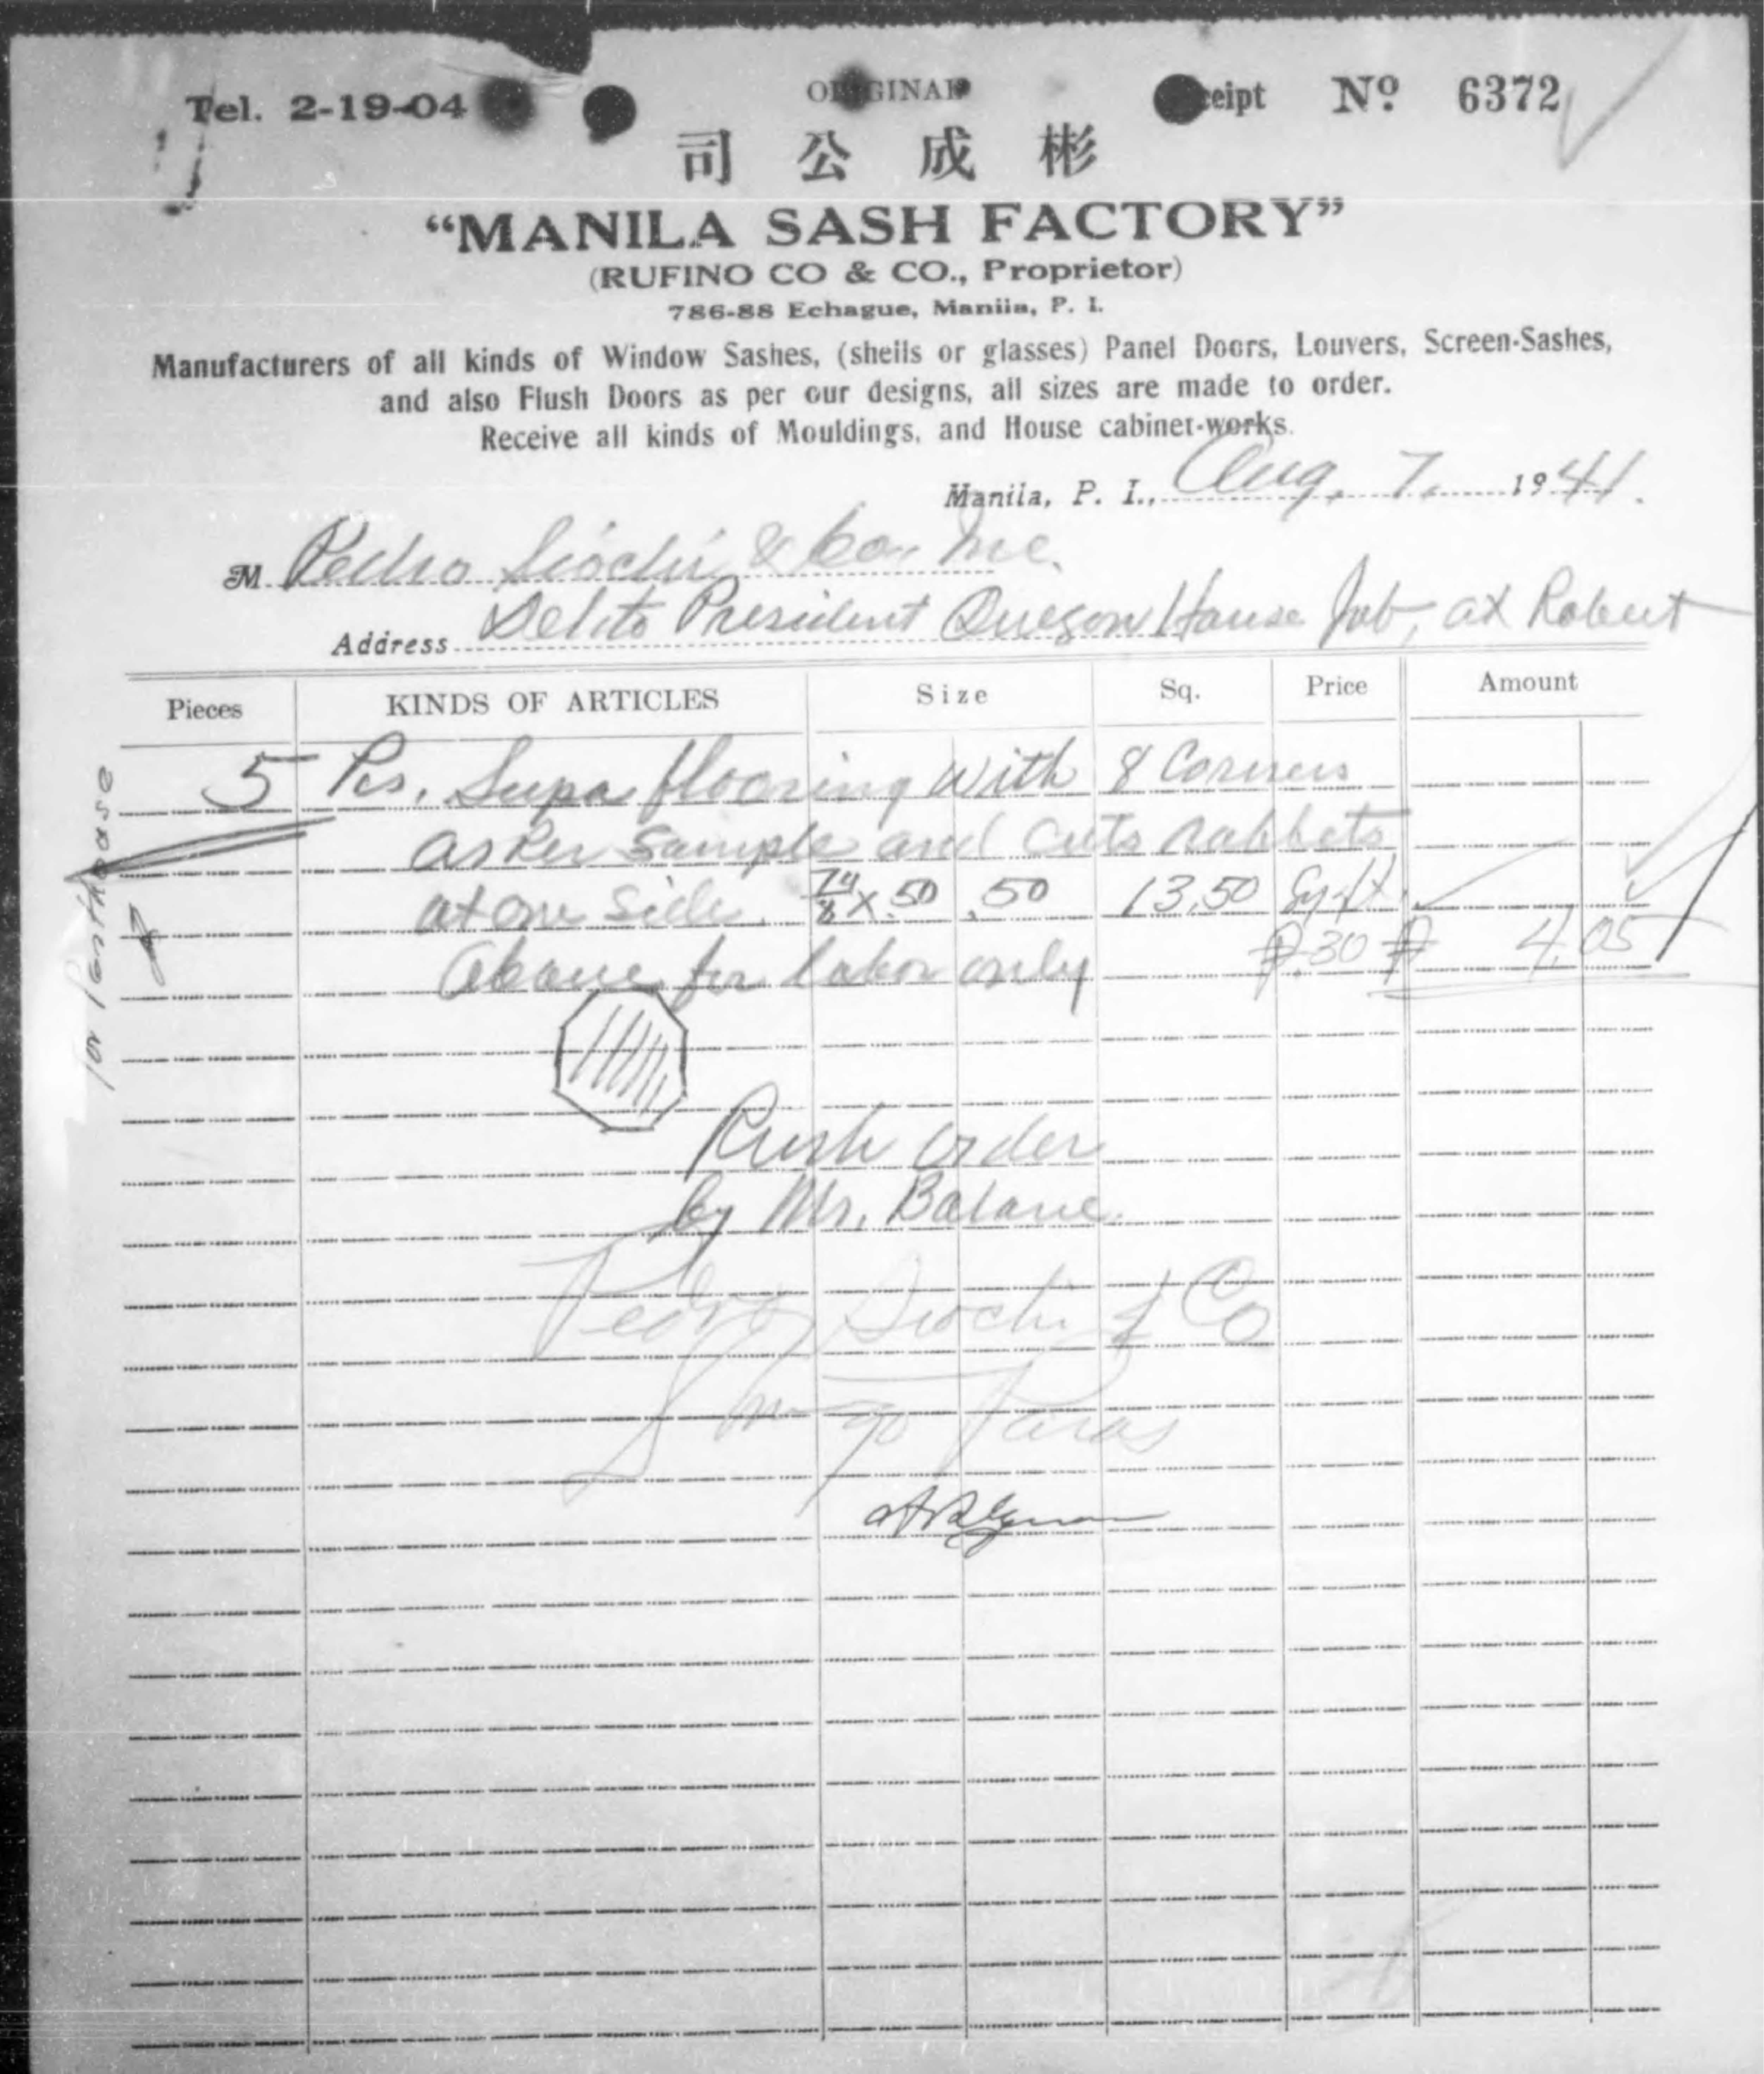 Tel. 2-19-04
ORIGINAL
ceipt Nº 6372
司公成彬
“MANILA SASH FACTORY”
(RUFINO CO & CO., Proprietor)
786-88 Echague, Manila, P. I.
Manufacturers of all kinds of Window Sashes, (shells or glasses) Panel Doors, Louvers, Screen-Sashes,
and also Flush Doors as per our designs, all sizes are made to order.
Receive all kinds of Mouldings, and House cabinet-works.
Manila, P. I., Aug. 7, 1941.
M Pedro Siochi & Co., Inc.
Address Del. to President Quezon House Job, at Robert
Pieces KINDS OF ARTICLES Size Sq. Price Amount
5 Pcs. Supa flooring with 8 Corners
as per sample and cuts rabbets
at one side. 7/8" x .50 .50 13.50 Sq. ft.
Above for labor only ₱.30 ₱ 4.05
for Penthouse
Rush order
by Mr. Balane.
Pedro Siochi & Co
Paras